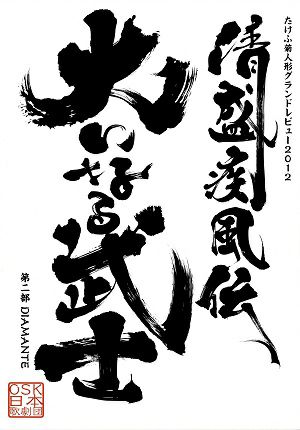 たけふ菊人形グランドレビュー2012
清盛疾風伝
大いなる武士
第二部 DIAMANTE
OSK
日本
歌劇団